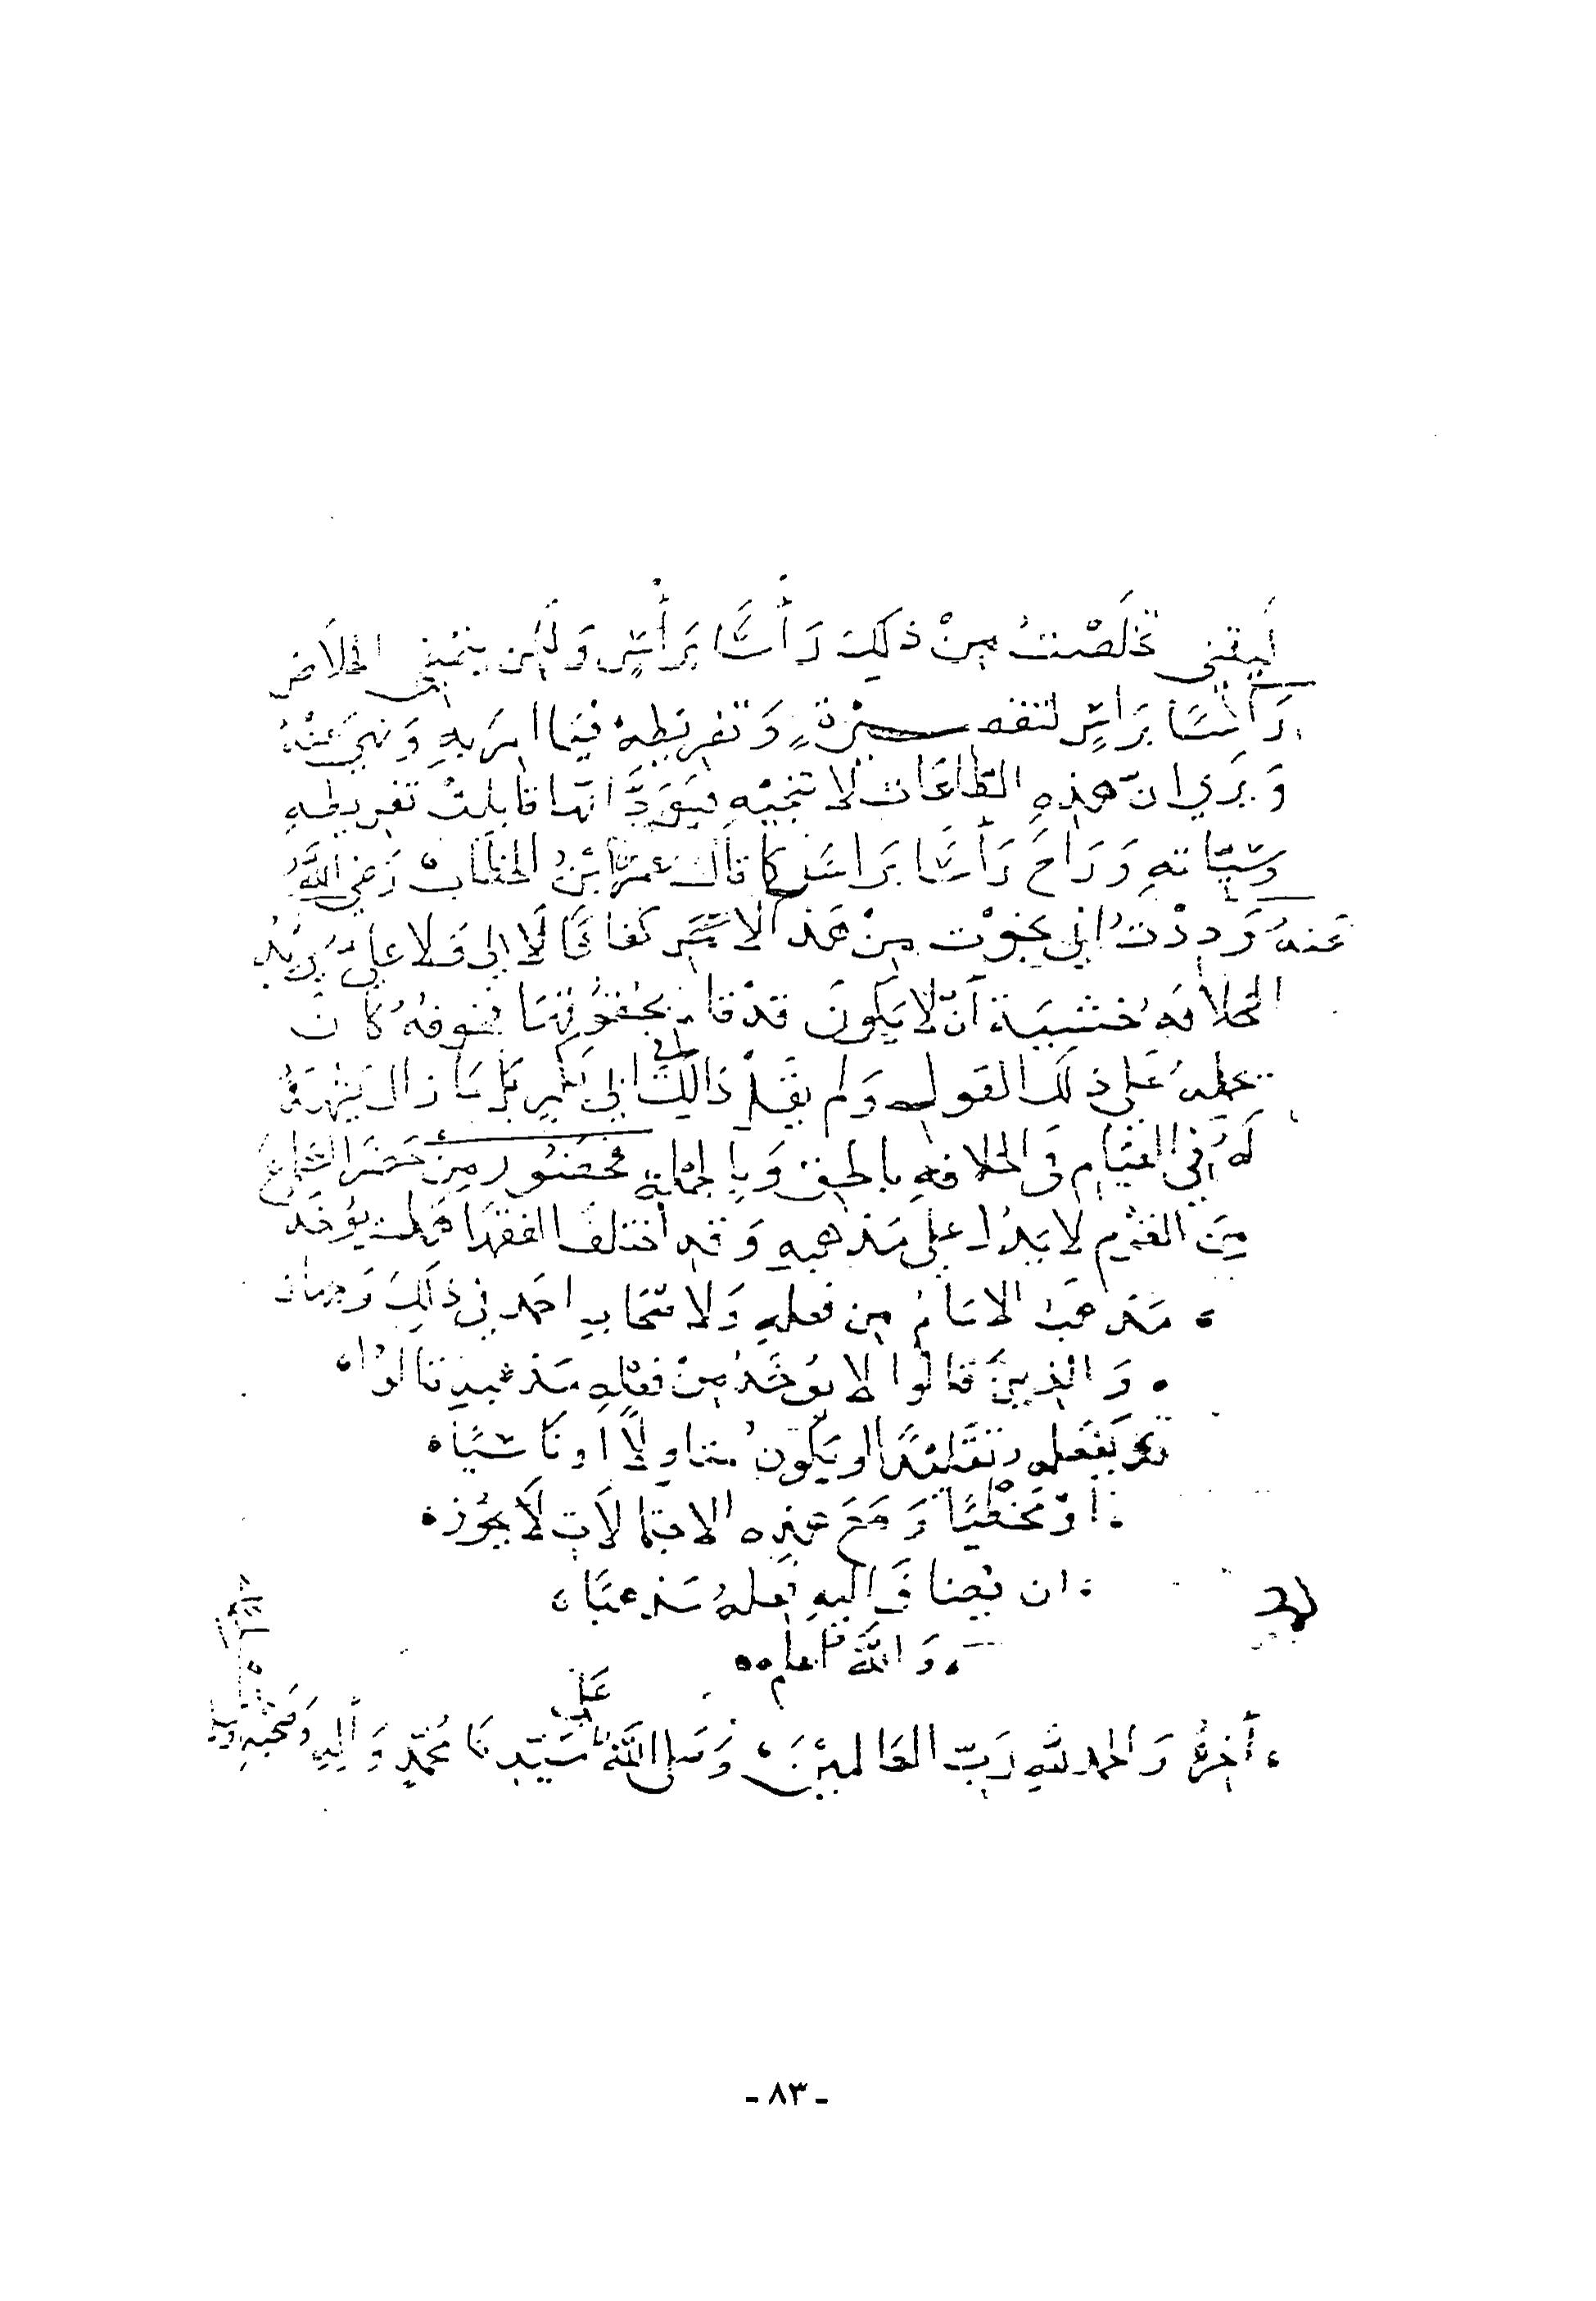 ليتني تخلصت من ذلك رأسا براس ولمن يتمنى الخلاص
رأسا براس لتقصيره وتفريطه فيما امر به ونهي عنه
ويري ان هذه الطاعات لا تنجيه فيود انها قابلت تفريطه
وسيئاته وراح رأسا براس كما قال عمر ابن الخطاب رضي الله
عنه وددت اني نجوت من هذا الامر كفافا لا لي ولا علي يريد
الخلافه خشية ان لا يكون قد قام بحقوقها فخوفه كان
يحمله على ذلك القول ولم يقل ذالك الا في
له في القيام في الخلافه بالحق وبالجملة فحضور من حضر السماع
من القوم لا يدل على مذهبه وقد اختلف الفقها هل يؤخذ
مذهب الامام من فعله ولاصحاب احمد في ذلك وجهان
والذين قالوا لا يؤخذ من فعله مذهبه قالوا
قد يفعله تقليدا او يكون متاولا او ناسيا
او مخطيا ومع هذه الاحتمالات لا يجوز
ان يضاف اليه فعله مذهبا
والله اعلم
على
اخره والحمد لله رب العالمين وصلى الله سيدنا محمد واله وصحبه وسلم
- ٨٣ -